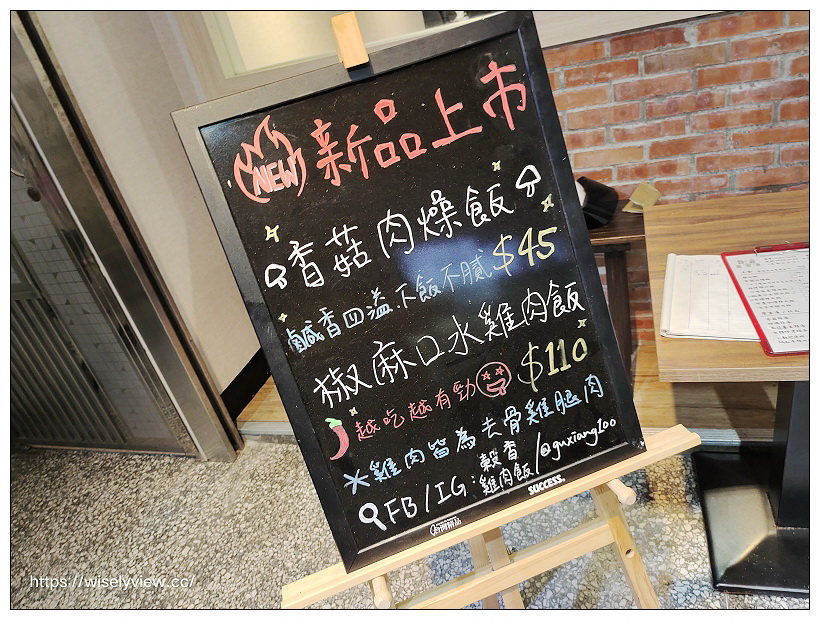 NEW 新品上市
香菇肉燥飯
鹹香四溢.下飯不膩 $45
椒麻口水雞肉飯
越吃越有勁 $110
*雞肉皆為去骨雞腿肉
FB/IG:穀香雞肉飯/@guxiang100
SUCCESS.
https://wiselyview.cc/